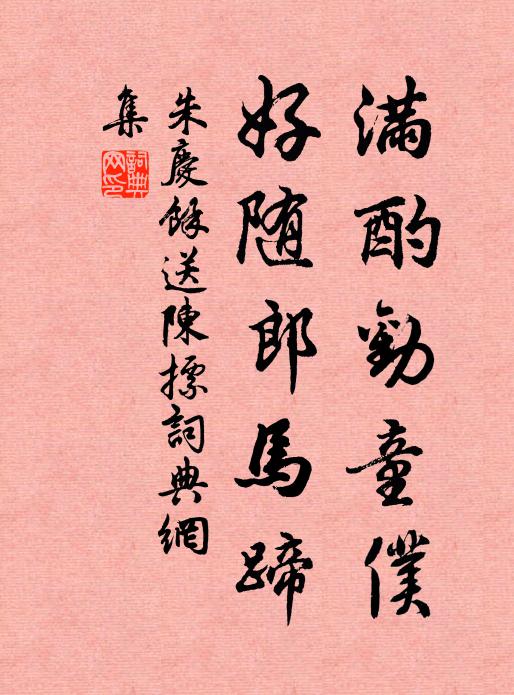 滿酌勸童僕
好随郎馬蹄
朱慶餘送陳摽詞典網
集
詞典
网印